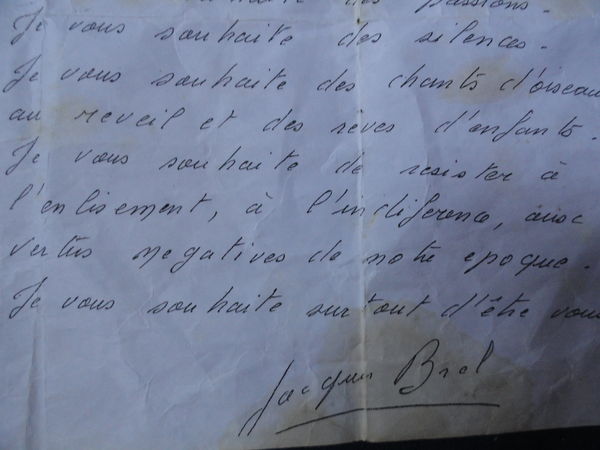 des passions.
Je vous souhaite des silences.
Je vous souhaite des chants d'oiseau
au reveil et des rêves d'enfants.
Je vous souhaite de resister à
l'enlisement, à l'indiference, aux
vertus negatives de notre epoque.
Je vous souhaite surtout d'être vous
Jacques Brel